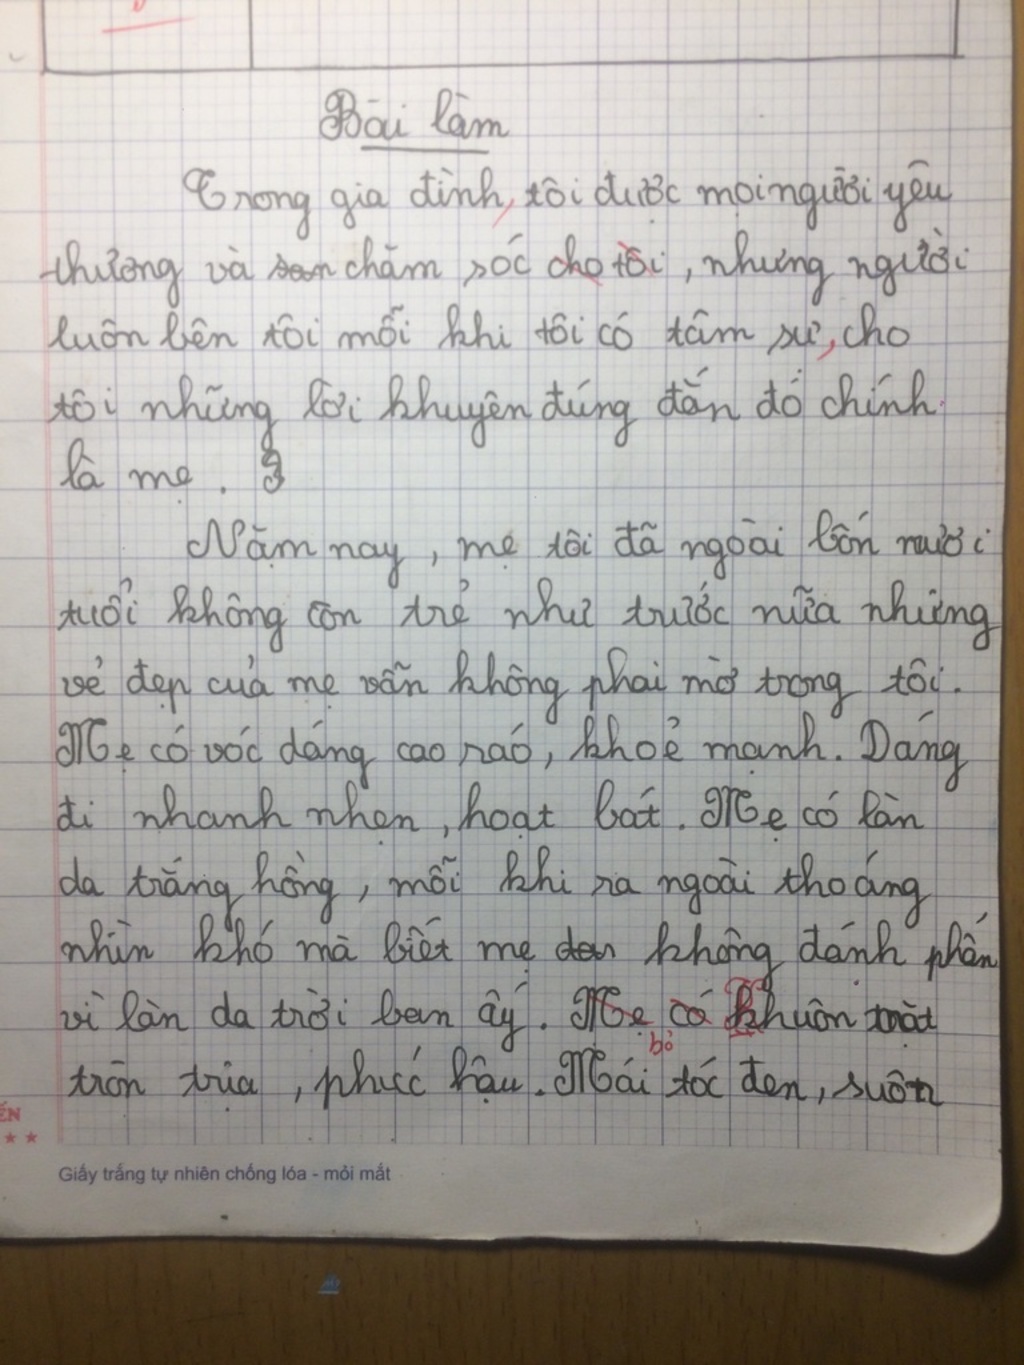 Bài làm
Trong gia đình, tôi được mọi người yêu
thương và chăm sóc cho tôi, nhưng người
luôn bên tôi mỗi khi tôi có tâm sự, cho
tôi những lời khuyên đúng đắn đó chính
là mẹ.
Năm nay, mẹ tôi đã ngoài bốn mươi
tuổi không còn trẻ như trước nữa nhưng
vẻ đẹp của mẹ vẫn không phai mờ trong tôi.
Mẹ có vóc dáng cao ráo, khoẻ mạnh. Dáng
đi nhanh nhẹn, hoạt bát. Mẹ có làn
da trắng hồng, mỗi khi ra ngoài thoáng
nhìn khó mà biết mẹ không dánh phấn
vì làn da trời ban ấy. Mẹ có Khuôn mặt
bỏ
tròn trịa, phúc hậu. Mái tóc đen, suôn
ẾN
Giấy trắng tự nhiên chống lóa - mỏi mắt